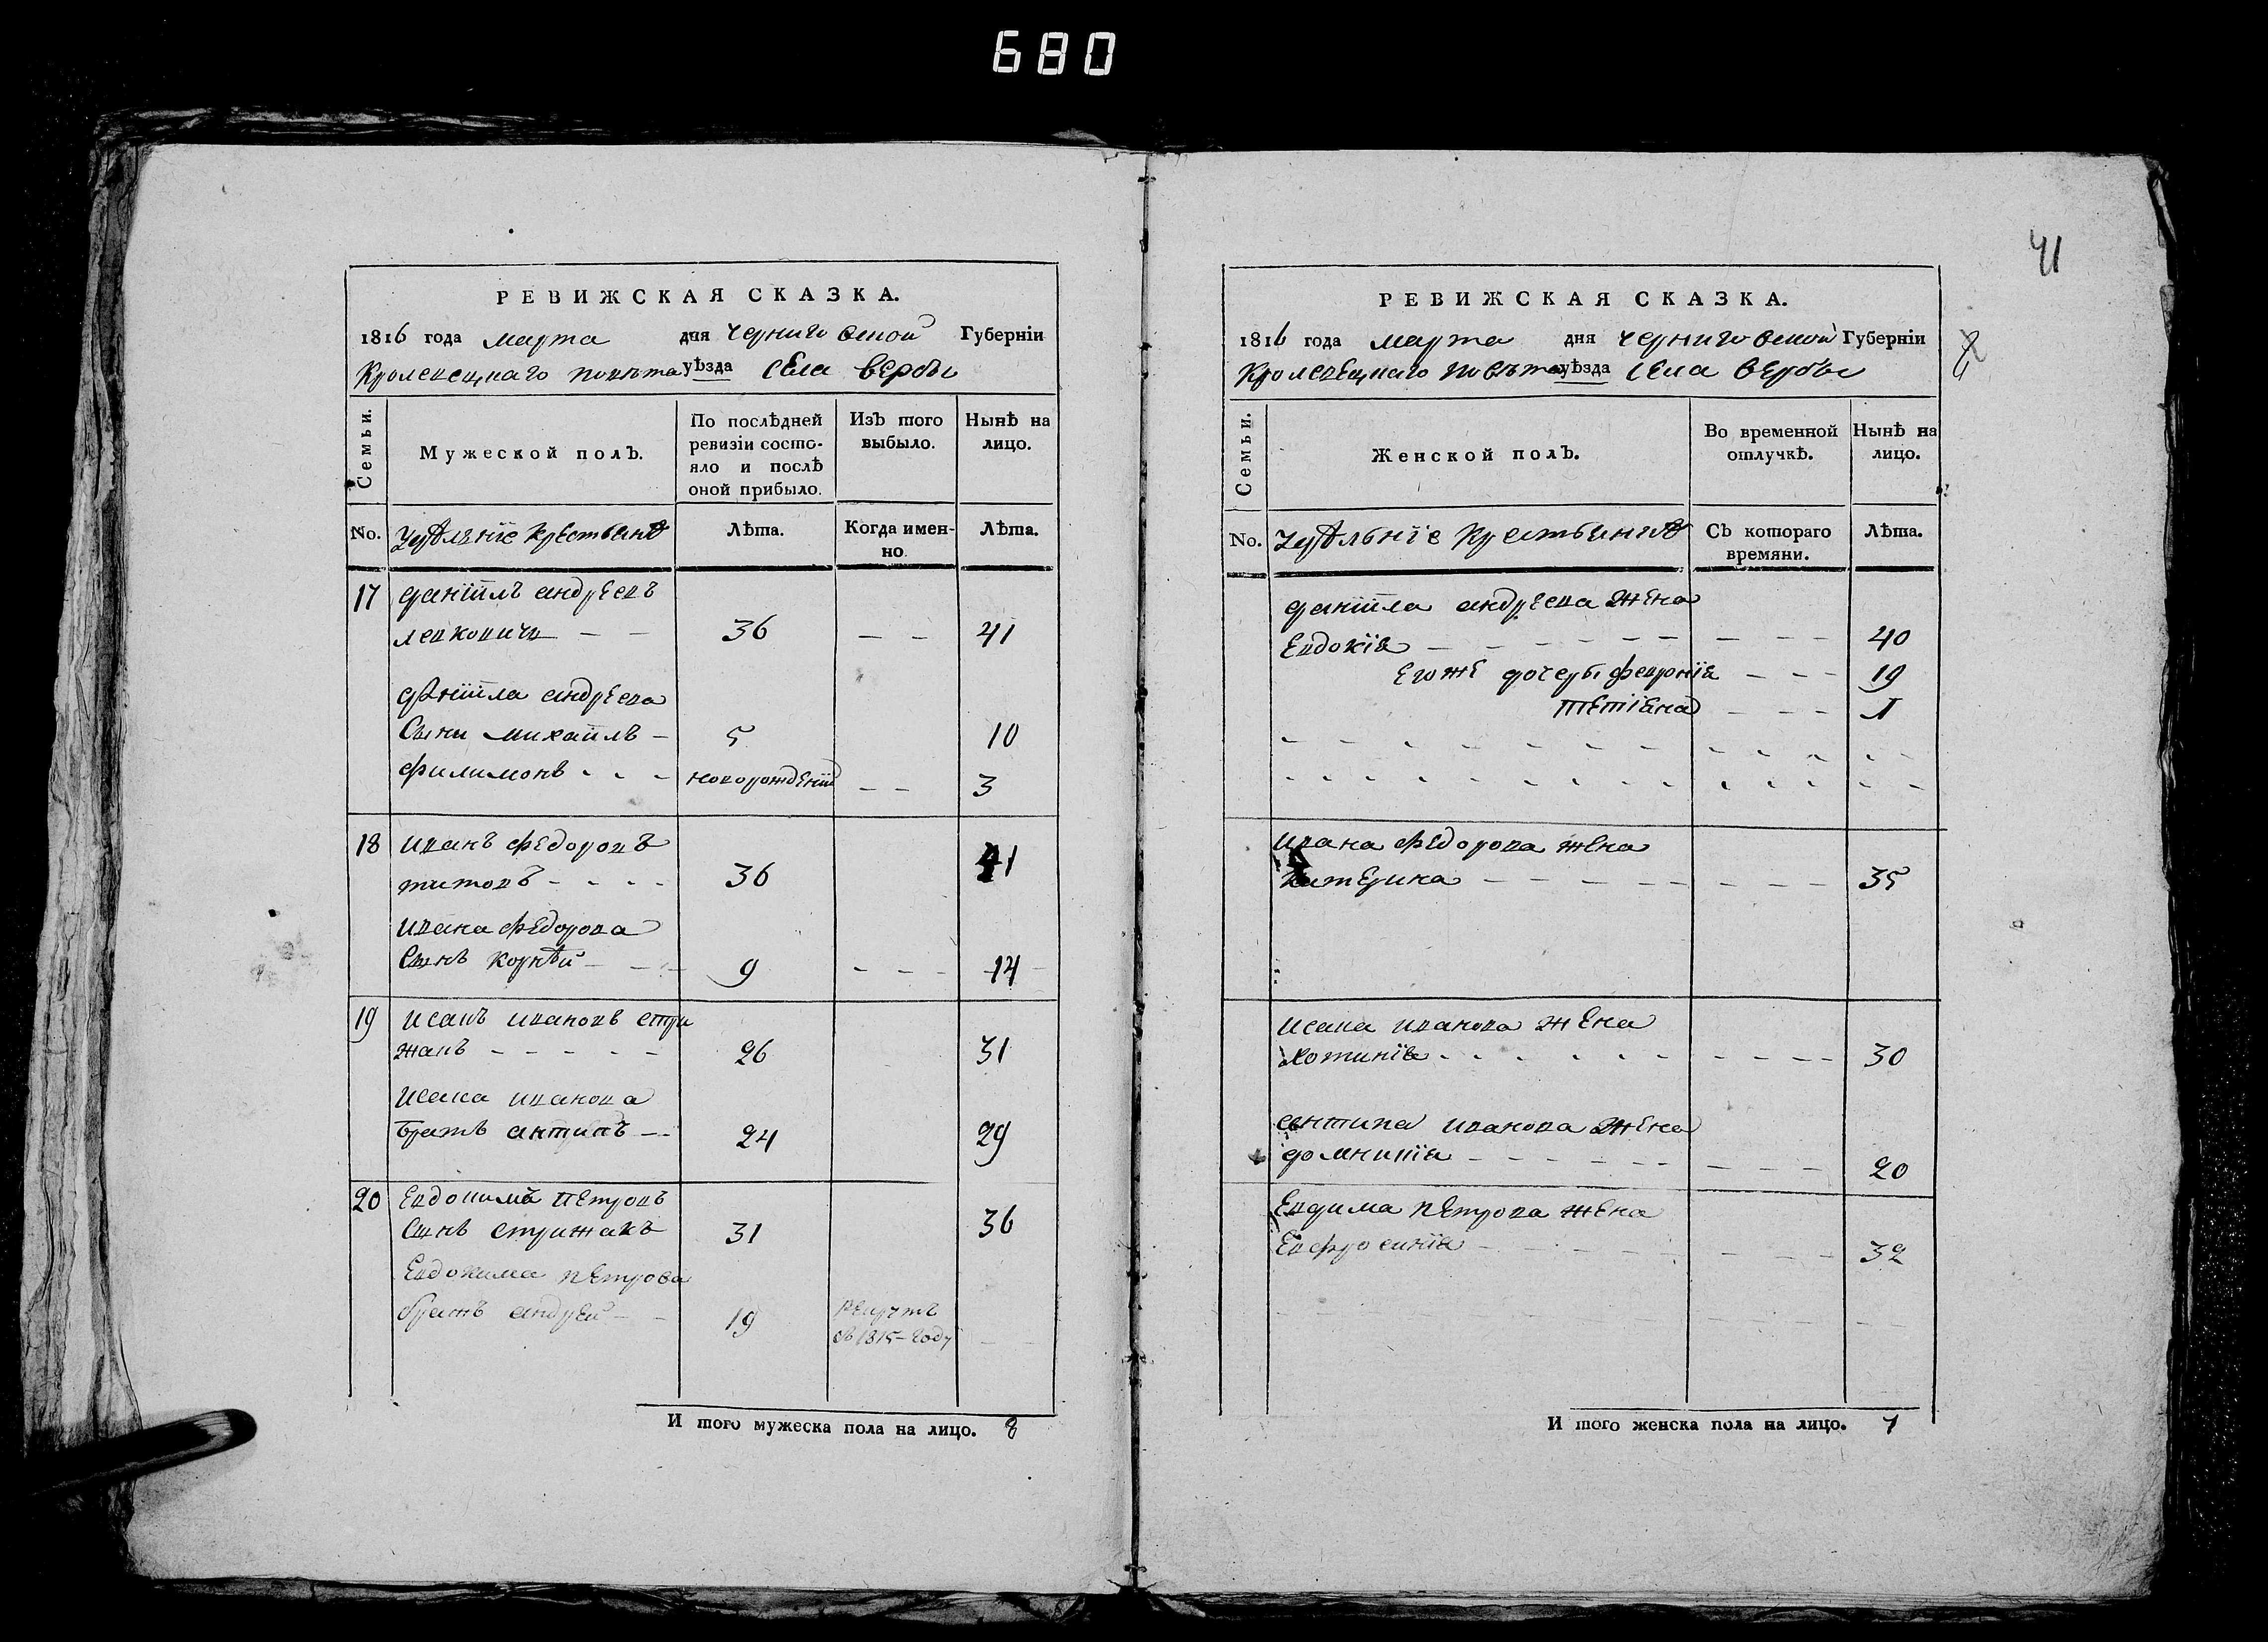 680
41
РЕВИЖСКАЯ СКАЗКА.
1816 года марта дня черниговской Губерніи
Кролевецкаго повѣта уѣзда села вербы
Семьи.
Мужеской полъ.
По послѣдней ревизіи состо-
яло и послѣ оной прибыло.
Изъ того выбыло.
Нынѣ на лицо.
No.
Лѣта.
Когда имен-
но.
Лѣта.
17 даніилъ андреевъ
левковичъ — — 36 — — 41
даніила андреева
сыны михаилъ – 5 10
филимонъ - - - новорожденій — — 3
18 иванъ федоровъ
титовъ - - - - 36 41
ивана федорова
сынъ корнѣй - - - 9 - - - 14
19 исакъ ивановъ стри
жакъ - - - - - 26 31
исака иванова
братъ антипъ — 24 29
20 Евдокимъ петровъ
сынъ стрижакъ 31 36
Евдокима петрова
братъ андрей - - 19 рекрутъ
въ 1815-году — —
И того мужеска пола на лицо. 8
РЕВИЖСКАЯ СКАЗКА.
1816 года марта дня черниговской Губерніи
Кролевецкаго повѣта уѣзда села вербы
Семьи.
Женской полъ.
Во временной отлучкѣ.
Нынѣ на лицо.
No.
Съ котораго времяни.
Лѣта.
даніила андреева жена
Евдокія — — — 40
Егоже дочеры феврониа - - - 19
тетіана - - - 1
ивана федорова жена
катерина — — — 35
исака иванова жена
хотиніа - - - 30
антипа иванова жена
домникіа - - - 20
Евдима петрова жена
Евфросиніа - - - 32
И того женска пола на лицо. 7